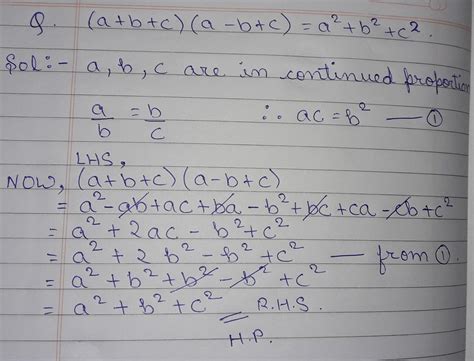 Q. (a+b+c)(a-b+c) = a²+b²+c².
Sol:- a, b, c are in continued proportion
a/b = b/c ∴ ac = b² — ①
LHS,
NOW, (a+b+c)(a-b+c)
= a²-ab+ac+ba-b²+bc+ca-cb+c²
= a²+2ac-b²+c²
= a²+2b²-b²+c² — from ①.
= a²+b²+b²-b²+c²
= a²+b²+c² = R.H.S.
H.P.